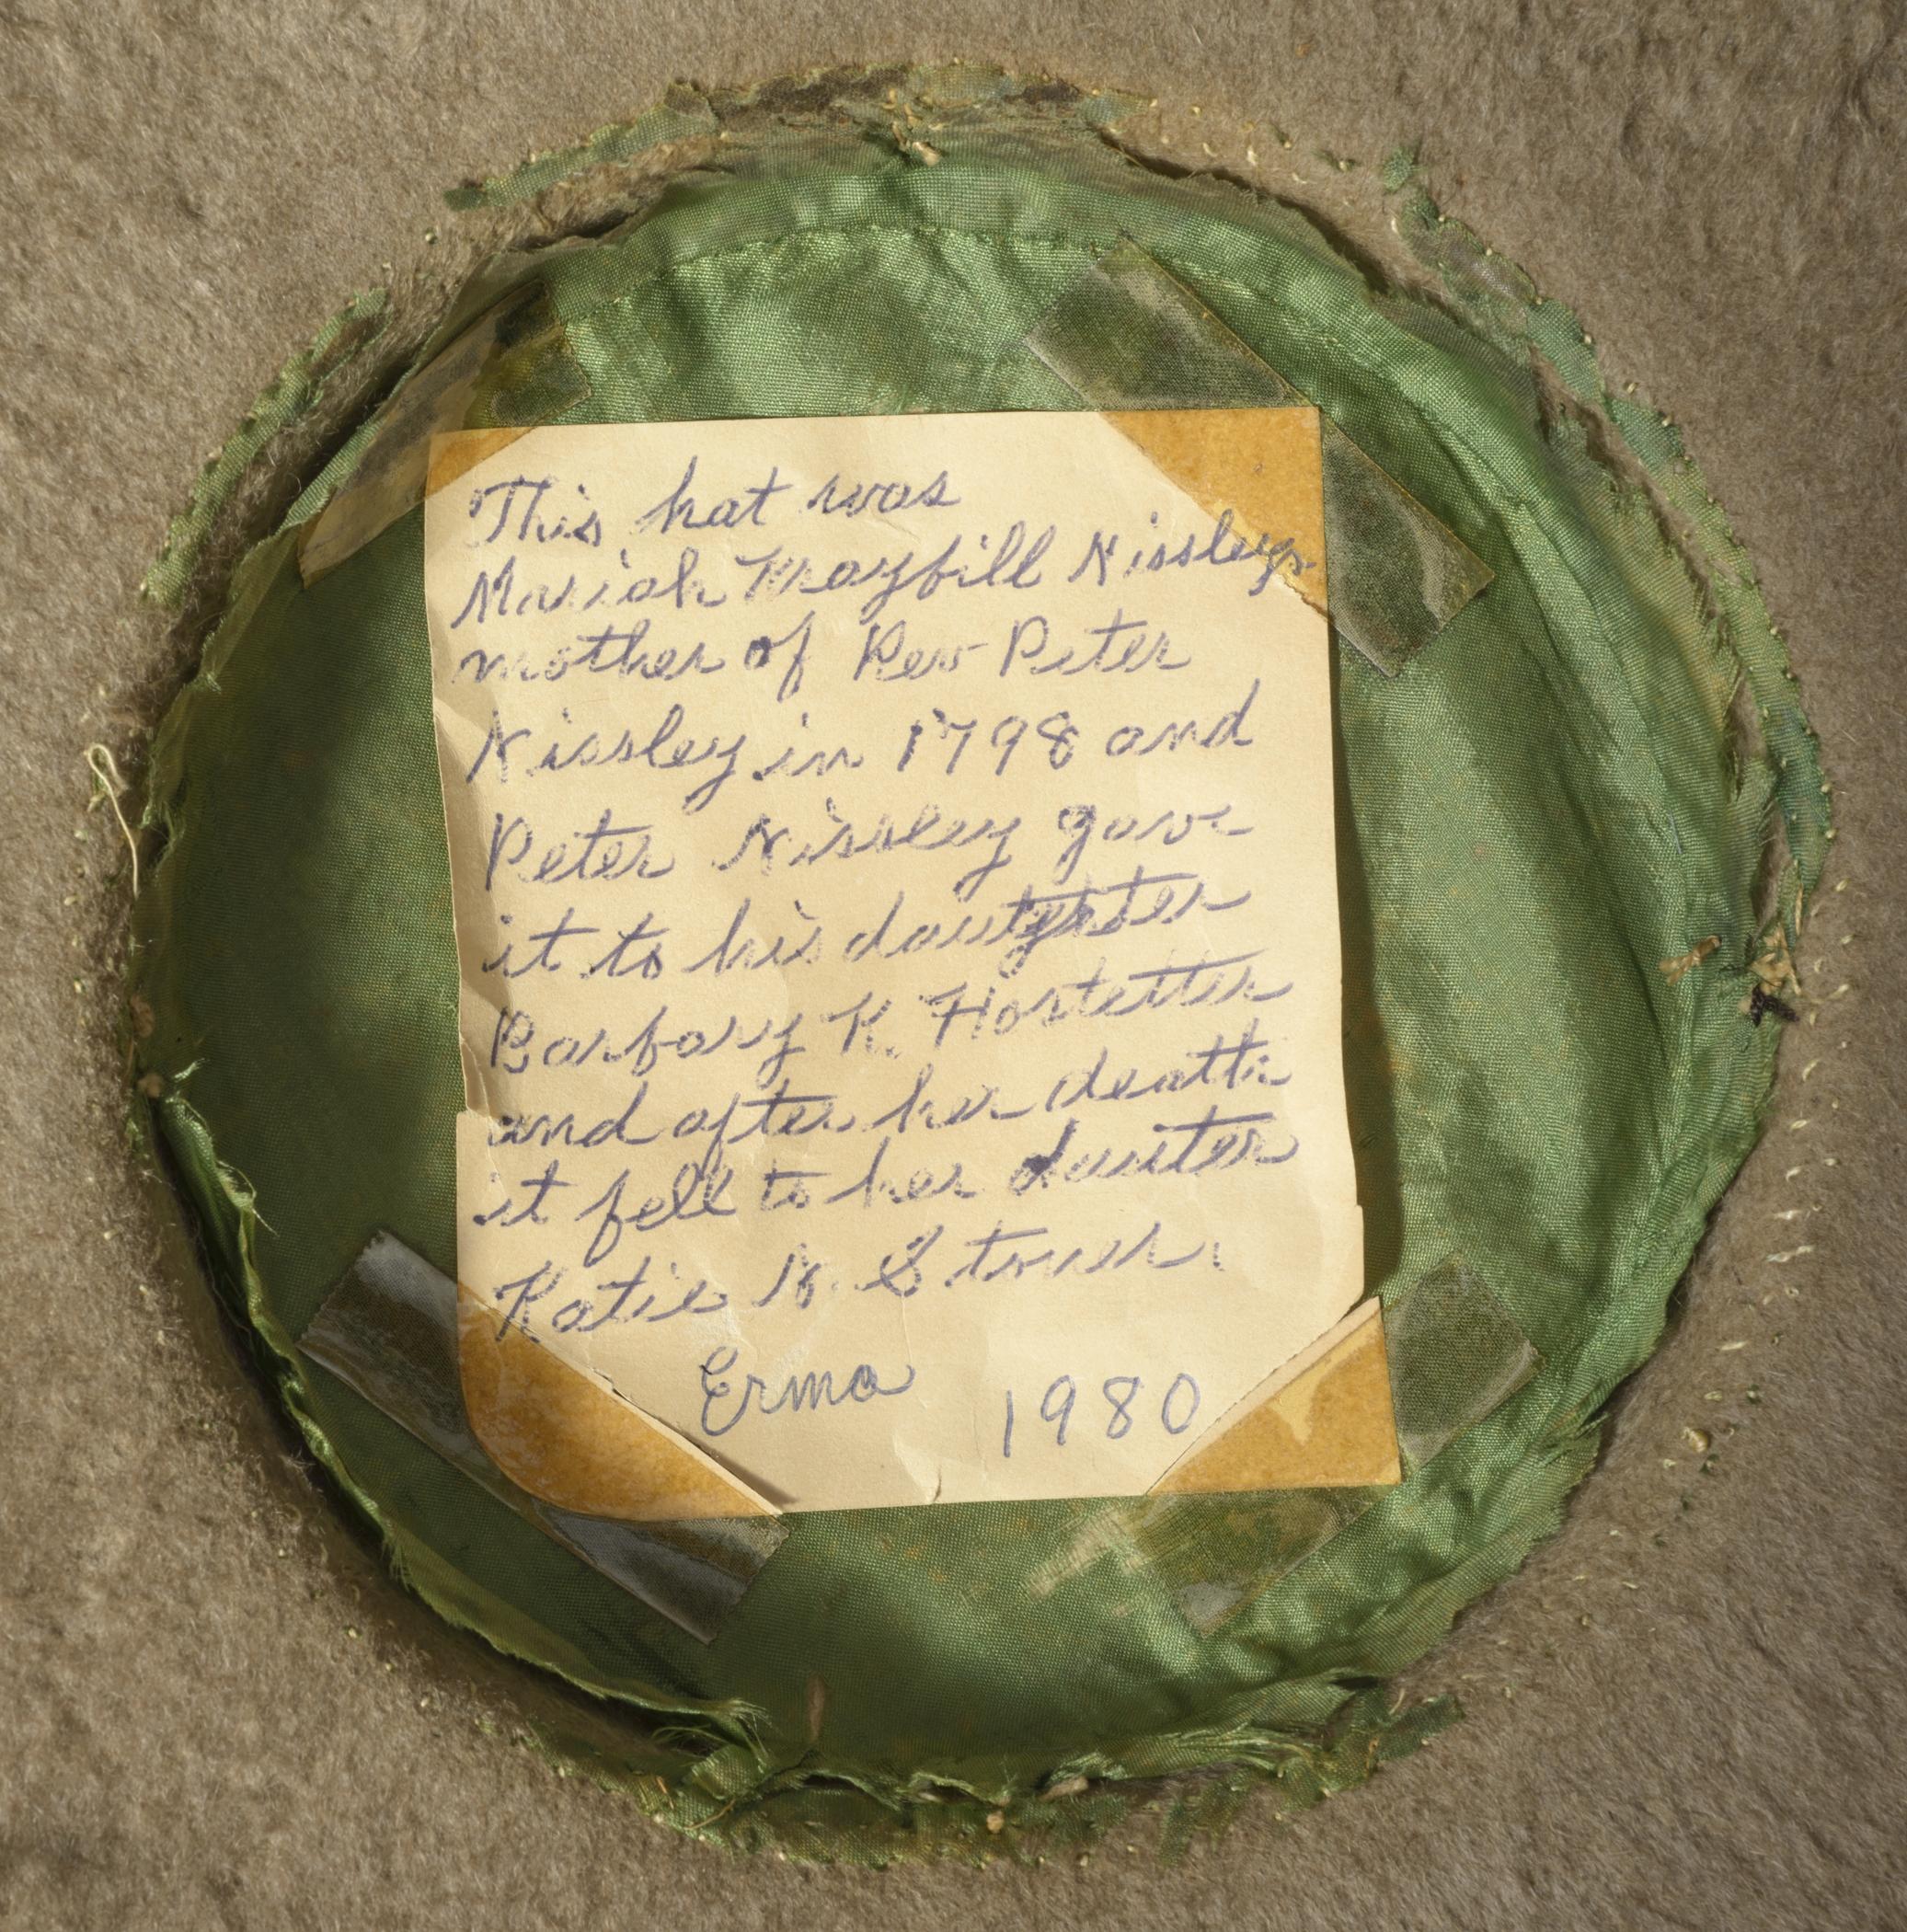 This hat was
Mariah Graybill Nissleys
mother of Rev Peter
Nissley in 1798 and
Peter Nissley gave
it to his daughter
Barbary K. Hostetter
and after her death
it fell to her dauter
Katie N. Stoner.
Erma 1980